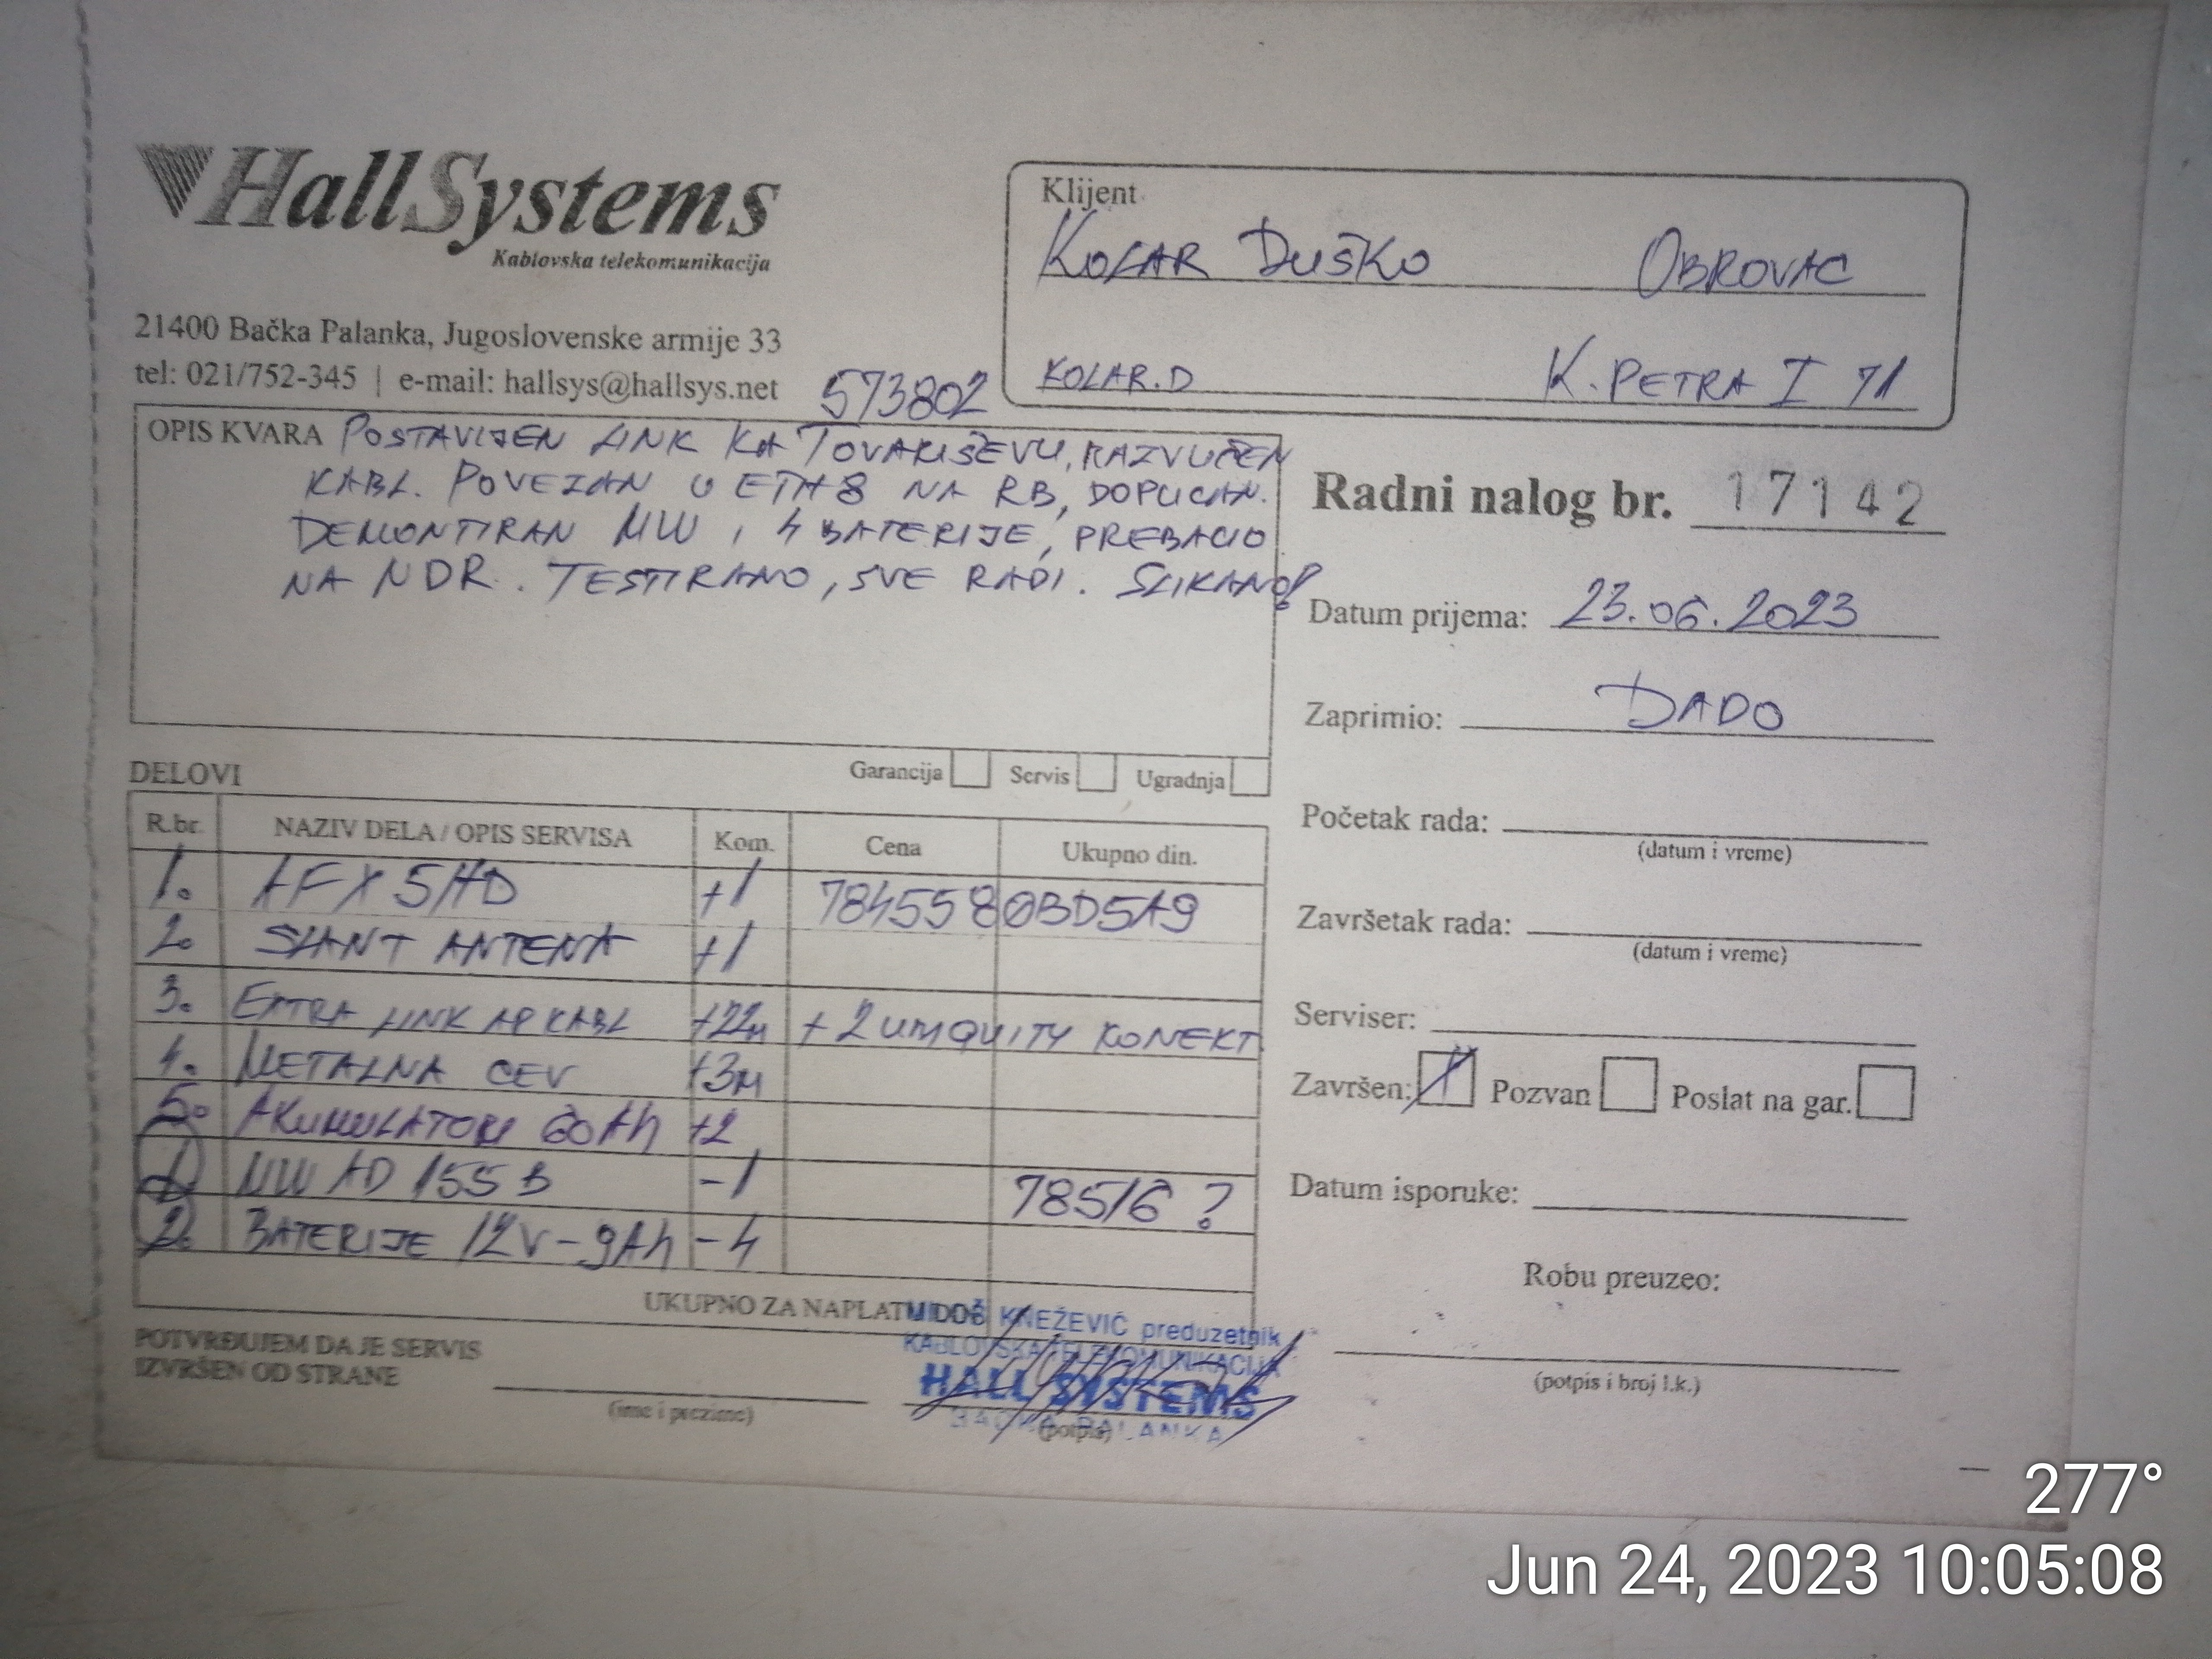 HallSystems
Kablovska telekomunikacija
21400 Bačka Palanka, Jugoslovenske armije 33
tel: 021/752-345 | e-mail: hallsys@hallsys.net
573802
Klijent
KOLAR DUŠKO OBROVAC
KOLAR.D K. PETRA I 71
OPIS KVARA POSTAVLJEN LINK KA TOVARIŠEVU, RAZVUČEN
KABL. POVEZAN U ETH8 NA RB, DOPUCAN.
DEMONTIRAN MW I 4 BATERIJE, PREBACIO
NA NDR. TESTIRANO, SVE RADI. SLIKANO!
Garancija Servis Ugradnja
Radni nalog br. 17142
Datum prijema: 23.06.2023
Zaprimio: DADO
Početak rada:
(datum i vreme)
Završetak rada:
(datum i vreme)
Serviser:
Završen: X Pozvan Poslat na gar.
Datum isporuke:
Robu preuzeo:
(potpis i broj l.k.)
DELOVI
R.br. NAZIV DELA / OPIS SERVISA Kom. Cena Ukupno din.
1. AFX 5HD +1 7845580BD5A9
2. SLANT ANTENA +1
3. EXTRA LINK AP KABL +22m + 2 UBIQUITY KONEKT.
4. METALNA CEV +3M
5. AKUMULATORI 60Ah +2
1. MW AD 155 B -1 78516 ?
2. BATERIJE 12V-9Ah -4
UKUPNO ZA NAPLATU DO
POTVRĐUJEM DA JE SERVIS
IZVRŠEN OD STRANE
(ime i prezime)
(potpis)
MILOŠ KNEŽEVIĆ preduzetnik
KABLOVSKA TELEKOMUNIKACIJA
HALL SYSTEMS
BAČKA PALANKA
277°
Jun 24, 2023 10:05:08